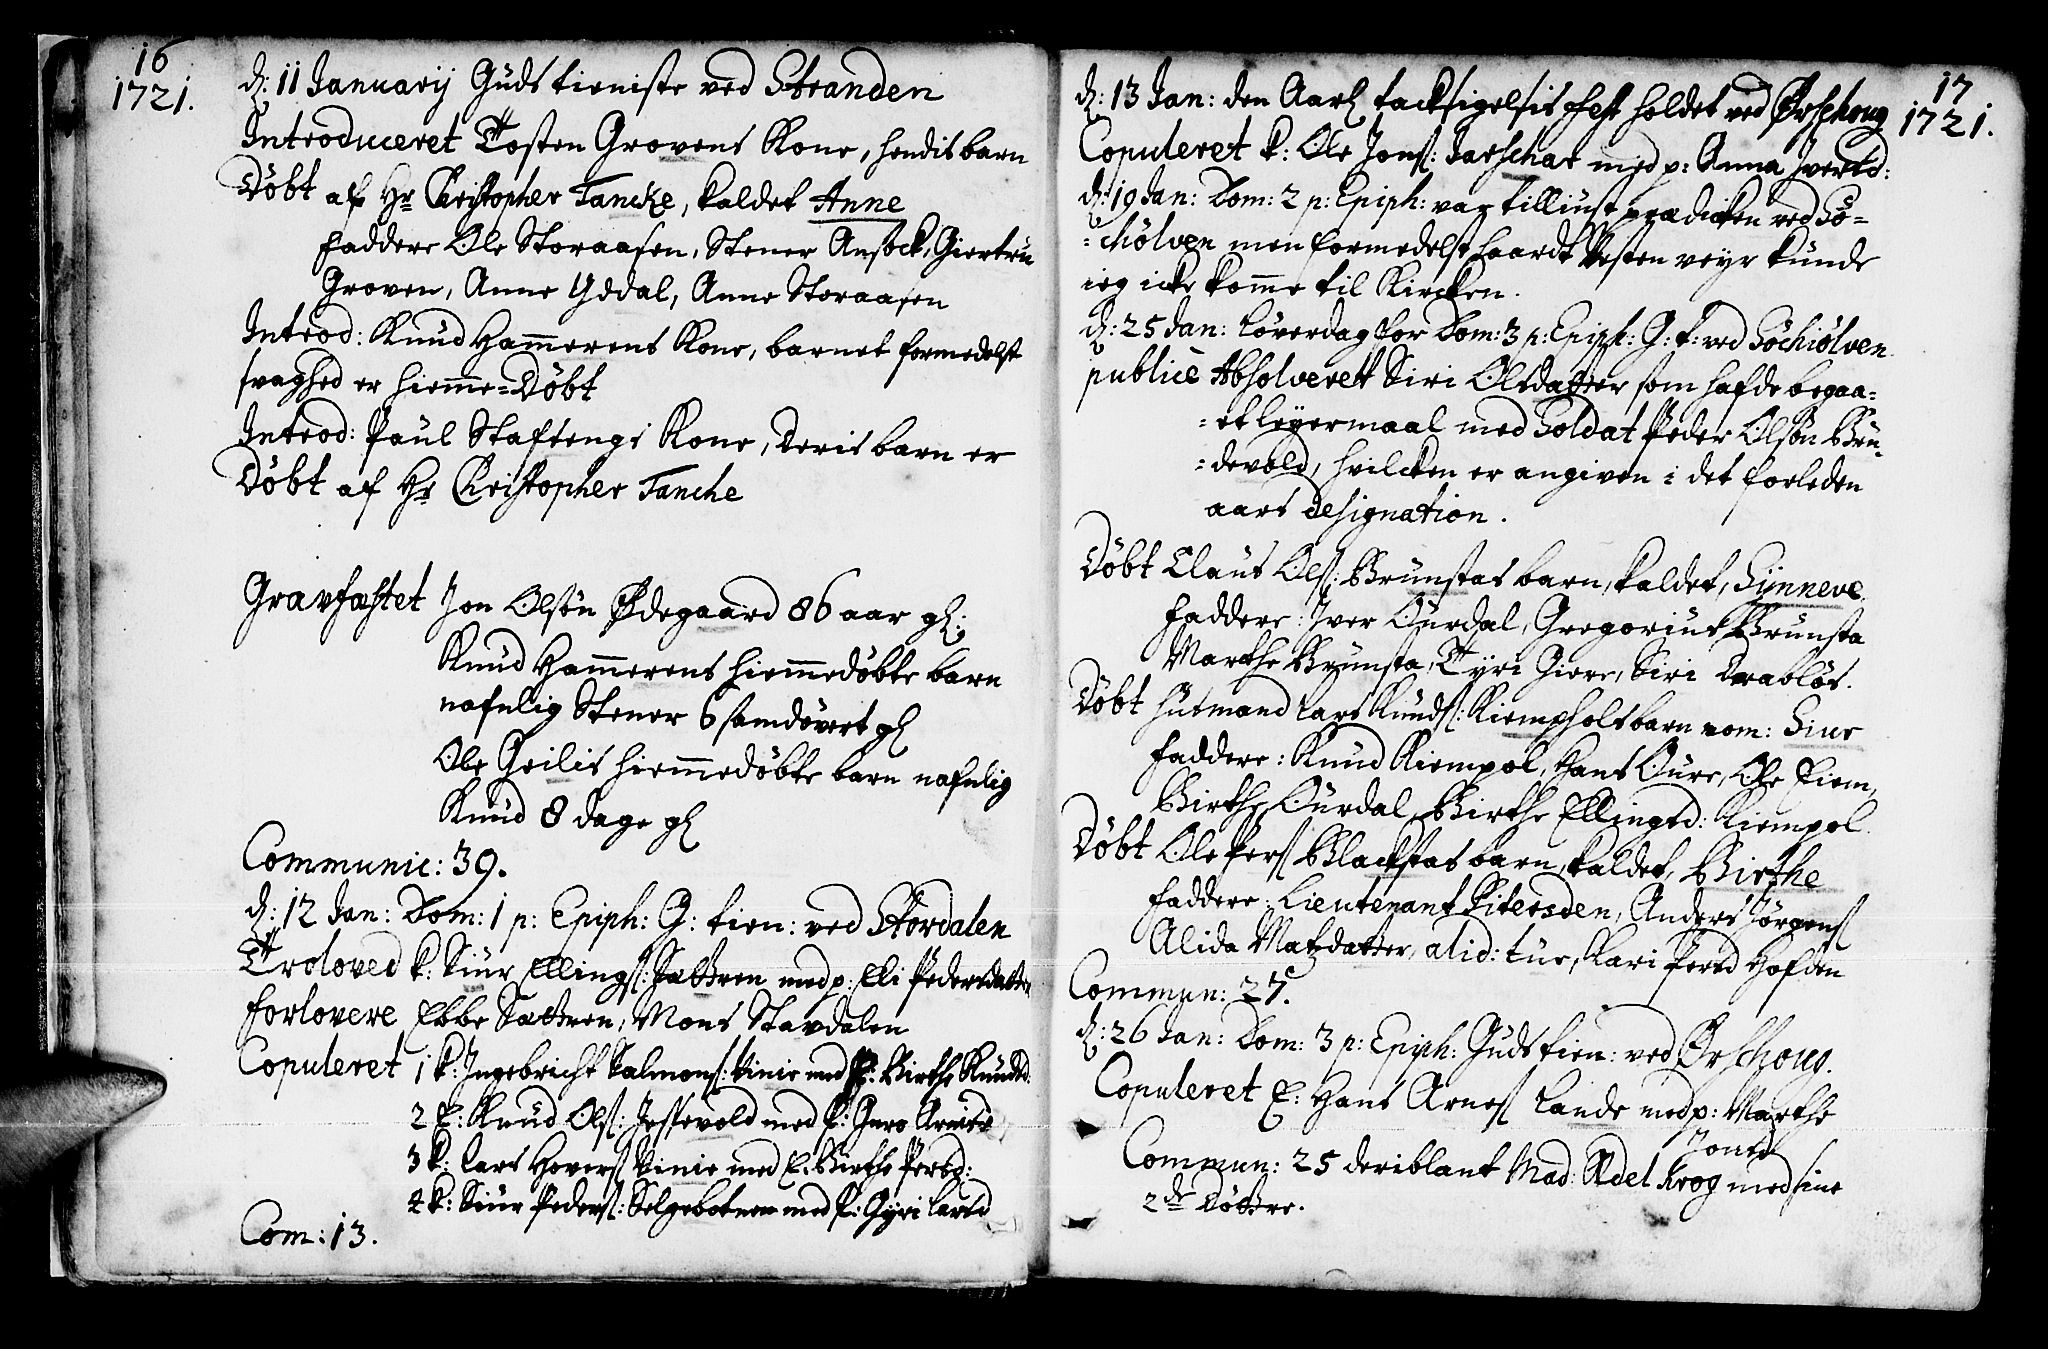 16
1721.
d: 11 Januarij Guds tieniste ved Stranden
Introduceret Tosten Grovens Kone, hendis barn
Döbt af Hr Christopher Tancke, kaldet Anne
Faddere Ole Storaasen, Stener Ansock, Giertru
Groven, Anne Yddal, Anne Storaasen
Introd: Knud Hammerens Kone, barnet formedelst
svaghed er hiemme=Döbt
Introd: Paul Staftengs Kone, deris barn er
Döbt af Hr Christopher Tanche
Gravfæstet Jon Olsön Ødegaard 86 aar gl:
Knud Hammerens hiemmedöbte barn
nafnlig Stener 6 samdövert gl
Ole Geilis hiemmedöbte barn nafnlig
Knud 8 dage gl
Communic: 39.
d: 12 Jan: Dom: 1 p: Epiph: G: tien: ved Stordalen
Troloved k: Siur Ellings: Sættren med p: Eli Pedersdatter
Forlovere Ebbe Sættren, Mons Stavdalen
Copuleret 1 k: Ingebricht Salmons: Vinie med P: Birthe Knudsd:
2 E: Knud Ols: Jessevold med P: Guro Arnisd
3 k: Lars Hovers Vinie med E. Birthe Persd:
4 k: Siur Peders: Selgebotnen med P: Gyri Larsd
Com: 13.
17
1721.
d: 13 Jan: den Aarl tacksigelsis Fest holdet ved Ørschoug
Copuleret k: Ole Jons: Jarschar med p: Anna Iversd:
d: 19 Jan: Dom: 2 p: Epiph: var tilliust prædicken ved Sö=
=chölven men formedelst haardt Vesten veyr kunde
ieg icke komme til Kircken.
d: 25 Jan: Löverdag for Dom: 3 p: Epiph: G. t: ved Söchiölven
publicè Absolveret Siri Olsdatter som hafde begaa=
=et leyermaal med Soldat Peder Olsön Bru=
=devold, hvilcken er angiven i det forleden
aars designation.
Döbt Claus Ols: Brunstas barn, kaldet, Synneve.
Faddere: Iver Ourdal, Gregorius Brunsta
Marthe Brunsta, Tyri Giere, Siri Drablös.
Döbt Husmand Lars Knuds: Kiemphols barn nom: Siur
Faddere: Knud Kiempol, Hans Oure, Ole Eiem,
Birthe Ourdal, Birthe Ellingsd: Kiempol.
Döbt Ole Pers Blackstas barn, kaldet, Birthe
Faddere: Lieutenant Pitersden, Anders Jörgens
Alida Matzdatter, alid: tus, Kari Persd Hofden
Commun: 27.
d: 26 Jan: Dom: 3 p: Epiph: Guds tien: ved Ørschoug.
Copuleret E: Hans Arnes Lande med p: Marthe
Jonsd
Commun: 25 deriblant Mad: Adel Krog med sine
2de Döttre.